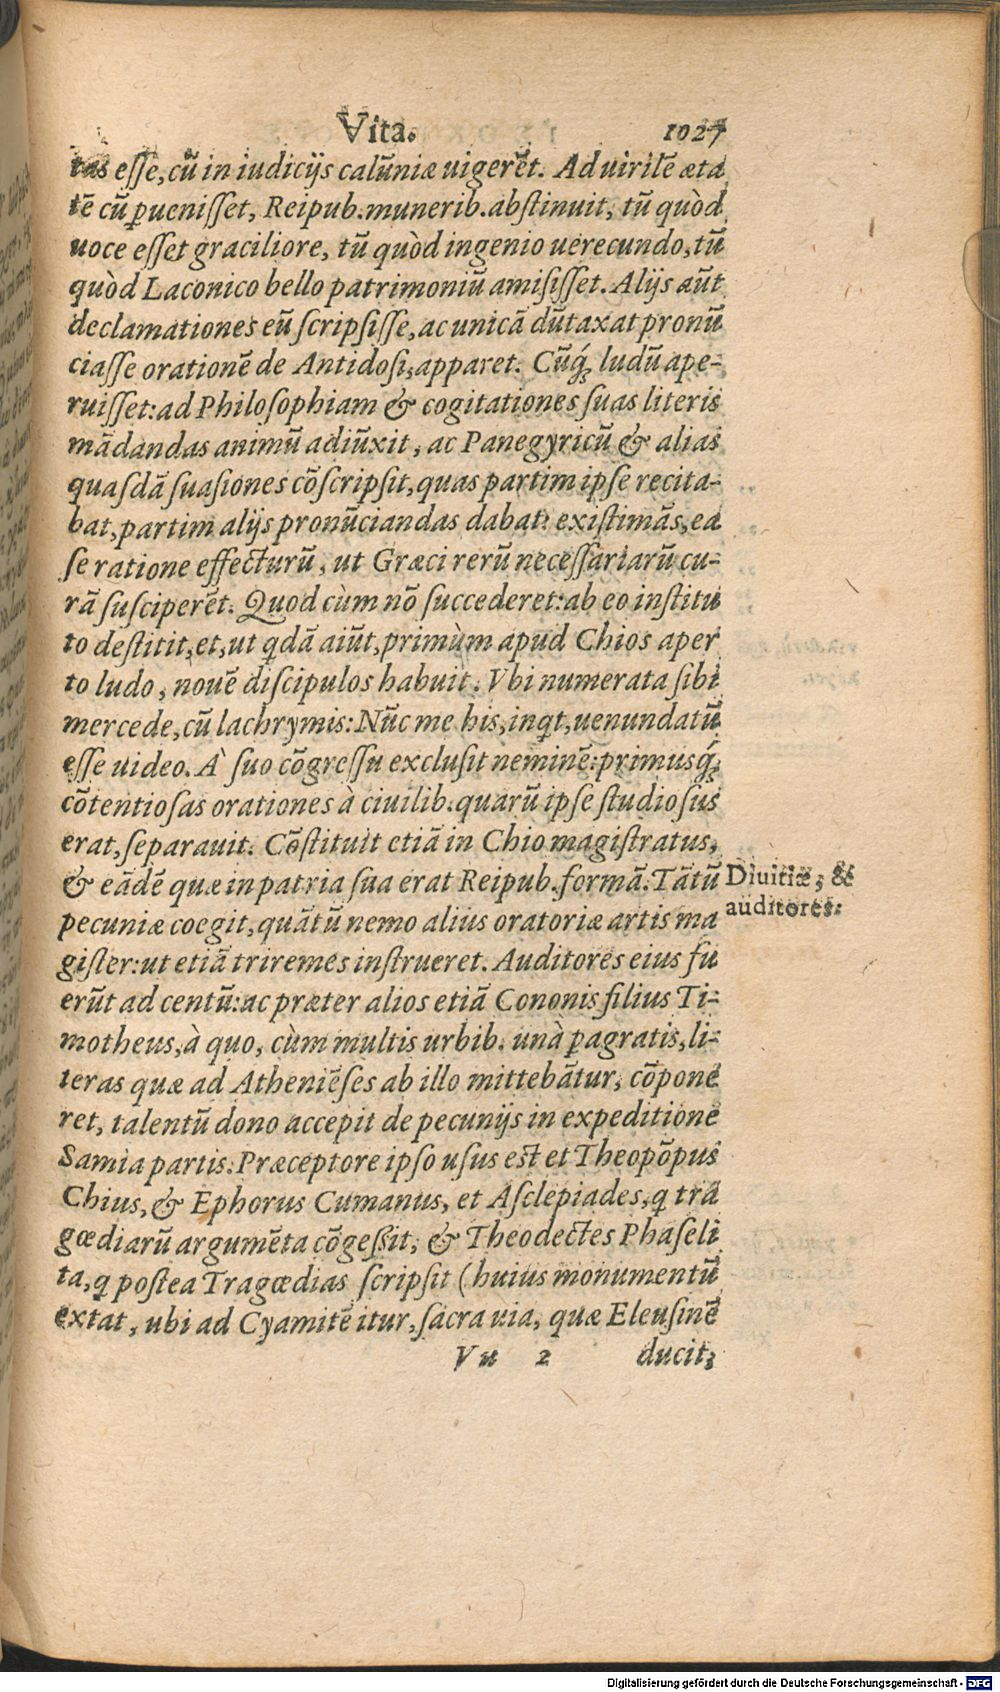 Vita. 1027
tas eſſe, cũ in iudicijs calũniæ uigerẽt. Ad uirilẽ æta
tẽ cũ ꝑueniſſet, Reipub. munerib. abſtinuit, tũ quòd
uoce eſſet graciliore, tũ quòd ingenio uerecundo, tũ
quòd Laconico bello patrimoniũ amiſiſſet. Alijs aũt
declamationes eũ ſcripſiſſe, ac unicã dũtaxat pronũ
ciaſſe orationẽ de Antidoſi, apparet. Cũq́ꝫ ludũ ape-
ruiſſet: ad Philoſophiam & cogitationes ſuas literis
mãdandas animũ adiũxit, ac Panegyricũ & alias
quaſdã ſuaſiones cõſcripſit, quas partim ipſe recita-
bat, partim alijs pronũciandas dabat: exiſtimãs, ea
ſe ratione effecturũ, ut Græci rerũ neceſſariarũ cu-
rã ſuſciperẽt. Quod cùm nõ ſuccederet: ab eo inſtitu
to deſtitit, et, ut qdã aiũt, primùm apud Chios aper
to ludo, nouẽ diſcipulos habuit. Vbi numerata ſibi
mercede, cũ lachrymis: Nũc me his, inqt, uenundatũ
eſſe uideo. À ſuo cõgreſſu excluſit neminẽ: primusq́ꝫ
cõtentioſas orationes à ciuilib. quarũ ipſe ſtudioſus
erat, ſeparauit. Cõſtituit etiã in Chio magiſtratus,
& eãdẽ quæ in patria ſua erat Reipub. formã. Tãtũ
pecuniæ coegit, quãtũ nemo alius oratoriæ artis ma
giſter: ut etiã triremes inſtrueret. Auditores eius fu
erũt ad centũ: ac præter alios etiã Cononis filius Ti-
motheus, à quo, cùm multis urbib. unà ꝑagratis, li-
teras quæ ad Atheniẽſes ab illo mittebãtur, cõpone
ret, talentũ dono accepit de pecunijs in expeditione
Samia partis. Præceptore ipſo uſus eſt et Theopõpus
Chius, & Ephorus Cumanus, et Aſclepiades, q tra
gœdiarũ argumẽta cõgeßit, & Theodectes Phaſeli
ta, q poſtea Tragœdias ſcripſit (huius monumentũ
extat, ubi ad Cyamitẽ itur, ſacra uia, quæ Eleuſinẽ
Vu 2 ducit,
Diuitiæ, &
auditores.
Digitalisierung gefördert durch die Deutsche Forschungsgemeinschaft - DFG